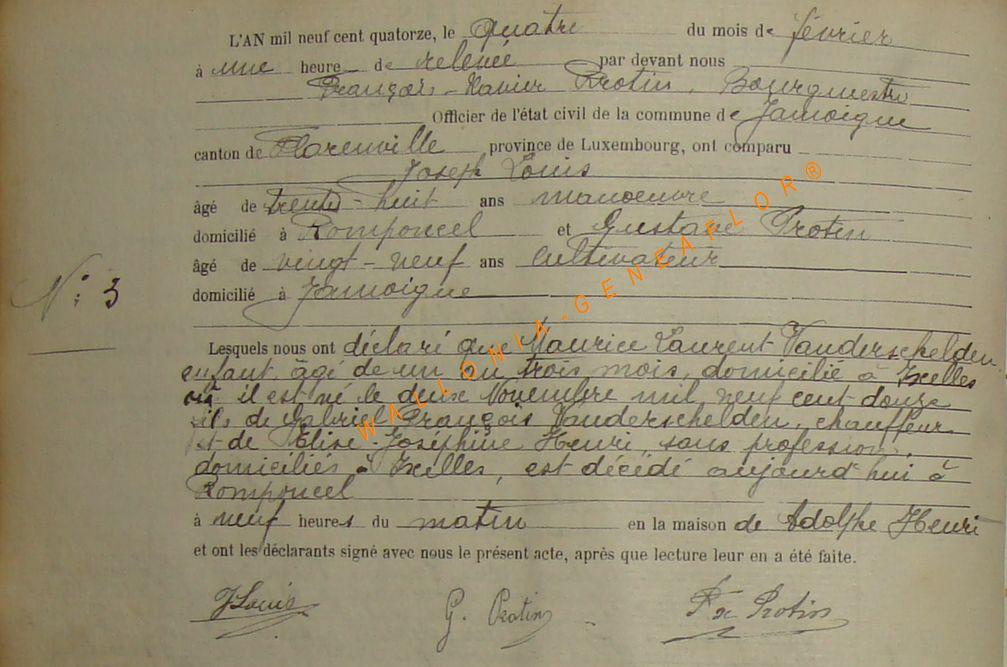 L'AN mil neuf cent quatorze, le quatre du mois de février
à une heure de relevée par devant nous
François-Xavier Protin, Bourgmestre
Officier de l'état civil de la commune de Jamoigne
canton de Florenville province de Luxembourg, ont comparu
Joseph Louis
âgé de trente-huit ans manoeuvre
domicilié à Romponcel et Gustave Protin
âgé de vingt-neuf ans cultivateur
N° 3
domicilié à Jamoigne
Lesquels nous ont déclaré que Maurice Laurent Vanderschelden
enfant, âgé de un an trois mois, domicilié à Ixelles
où il est né le deux Novembre mil neuf cent douze
fils de Gabriel François Vanderschelden, chauffeur
et de Elise-Joséphine Henri, sans profession,
domiciliés à Ixelles, est décédé aujourd'hui à
Romponcel
à neuf heures du matin en la maison de Adolphe Henri
et ont les déclarants signé avec nous le présent acte, après que lecture leur en a été faite.
J Louis G. Protin Fx Protin
WALLONIA-GENEAFLOR®